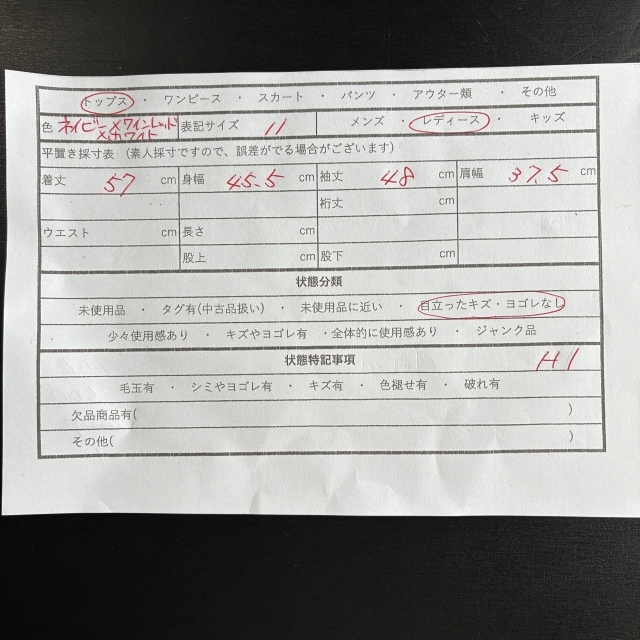 トップス ・ ワンピース ・ スカート ・ パンツ ・ アウター類 ・ その他
色 ネイビー×ワインレッド×ホワイト 表記サイズ 11 メンズ ・ レディース ・ キッズ
平置き採寸表 (素人採寸ですので、誤差がでる場合がございます)
着丈 57 cm 身幅 45.5 cm 袖丈 48 cm 肩幅 37.5 cm
裄丈 cm
ウエスト cm 長さ cm 股上 cm 股下 cm
状態分類
未使用品 ・ タグ有(中古品扱い) ・ 未使用品に近い ・ 目立ったキズ・ヨゴレなし
少々使用感あり ・ キズやヨゴレ有 ・全体的に使用感あり ・ ジャンク品
状態特記事項 H1
毛玉有 ・ シミやヨゴレ有 ・ キズ有 ・ 色褪せ有 ・ 破れ有
欠品商品有( )
その他( )